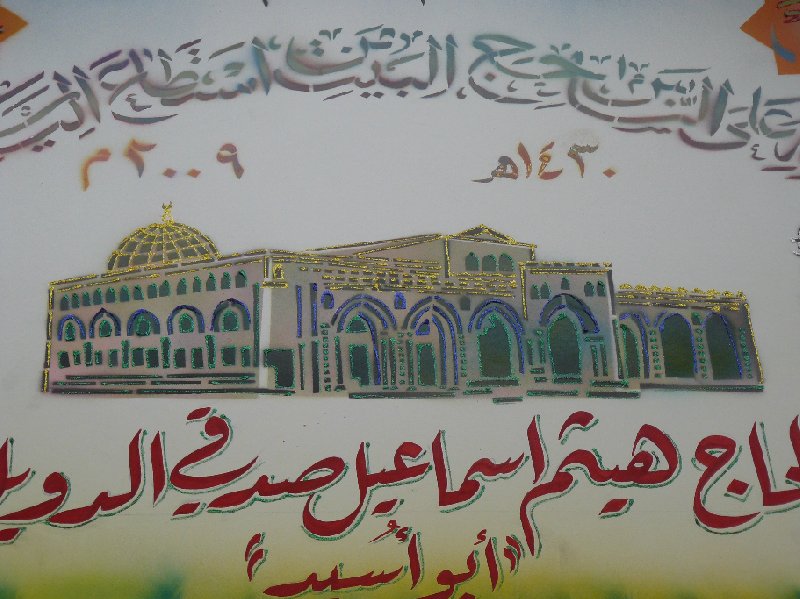 على الناس حج البيت من استطاع
١٤٣٠هـ ٢٠٠٩م
الحاج هيثم اسماعيل صدقي الدويك
"أبو أُسيد"